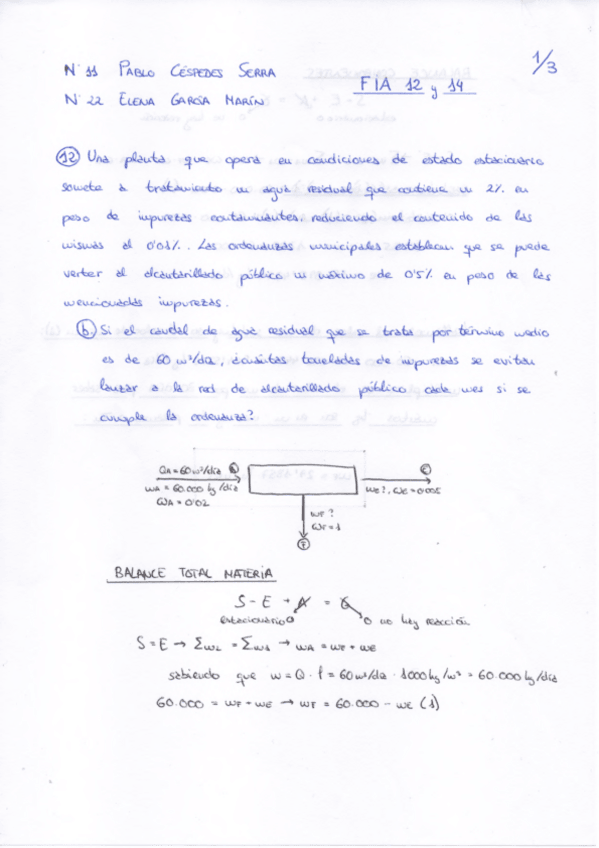 1/3
Nº 11 PABLO CÉSPEDES SERRA
FIA 12 y 14
Nº 22 ELENA GARCÍA MARÍN
12 Una planta que opera en condiciones de estado estacionario
somete a tratamiento un agua residual que contiene un 2% en
peso de impurezas contaminantes, reduciendo el contenido de las
mismas al 0'01%. Las ordenanzas municipales establecen que se puede
verter al alcantarillado público un máximo de 0'5% en peso de las
mencionadas impurezas.
b. Si el caudal de agua residual que se trata por término medio
es de 60 m³/día, ¿cuántas toneladas de impurezas se evitan
lanzar a la red de alcantarillado público cada mes si se
cumple la ordenanza?
QA = 60 m³/día
E
wA = 60.000 kg/día
wE?, ωE = 0'005
ωA = 0'02
wF?
ωF = 1
F
BALANCE TOTAL MATERIA
S - E + A = G
estacionario 0
0 no hay reacción
S = E → Σw2 = Σw1 → wA = wF + wE
sabiendo que w = Q · ρ = 60 m³/día · 1000 kg/m³ = 60.000 kg/día
60.000 = wF + wE → wF = 60.000 - wE (1)